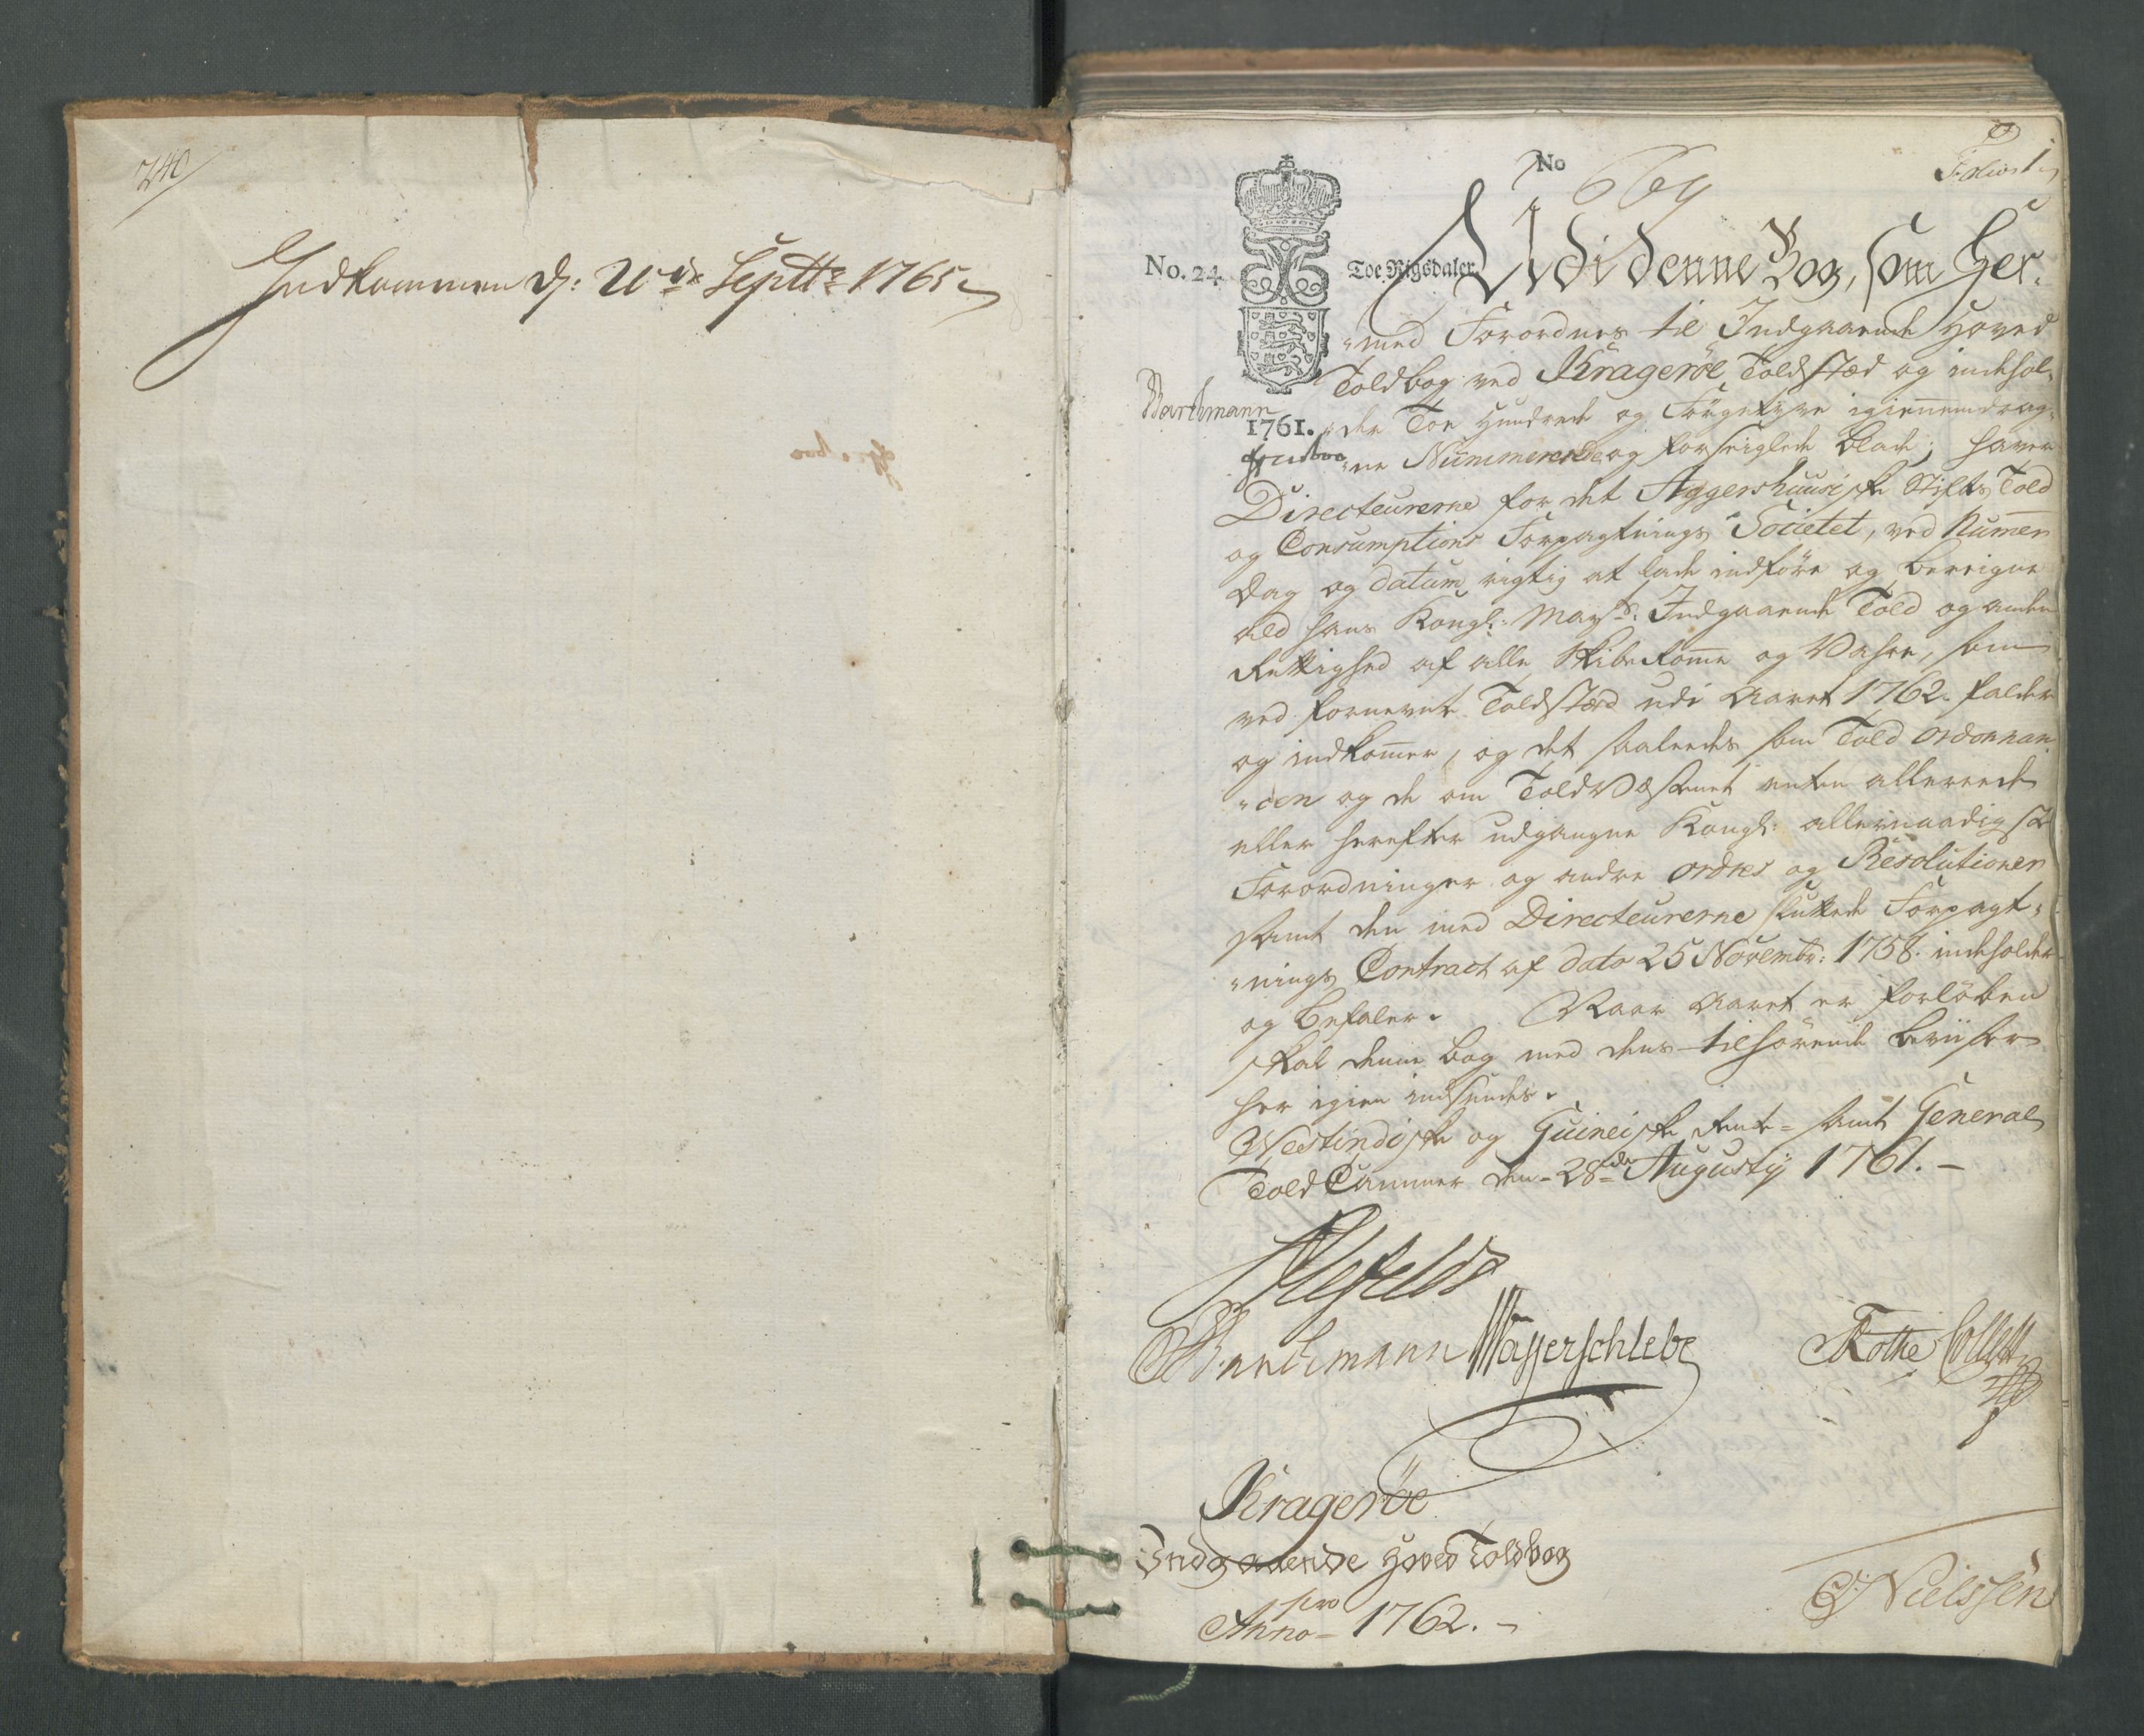 240
Indkommen d: 21de Septtr 1765
No
Folio 1
No. 24
Toe Rigsdaler
Udi denne Bog, som Her-
med Forordnes til Indgaaende Hoved
Toldbog ved Kragerøe Toldstæd og indehol-
Barthmann
1761.
der Toe Hundrede og Førgetyve igiennemdrag-
ne Nummererede og forseiglede blade, haver
Directeurerne for det Aggershuusiske Stifts Told
og Consumptions Forpagtnings Societet, ved Numer
Dag og datum rigtig at lade indføre og beregne
ald hans Kongl: Mayts: Indgaaende Told og anden
Rettighed af alle Skibe komne og Vahre, som
ved fornevnte Toldstæd udi Aaret 1762. falder
og indkommer, og det saaledes som Told ordonnan-
cen og de om ToldVæsenet enten allereede
eller herefter udgangne Kongl: allernaadigste
Forordninger og andre ordres og Resolutioner
samt den med Directeurerne sluttede Forpagt-
nings Contract af dato 25 Novembr: 1758. indeholder
og befaler. Naar Aaret er forløben
skal denne bog med dens tilhørende beviiser
her igien indsendes.
Westindiske og Guineiske Rente- samt General
Told Cammer den 28de Augustij 1761.
Ahlefeldt
Barthmann Wasserschlebe Rothe Collett
Kragerøe
Indgaaende Hoved Toldbog
pro
Anno 1762.
Nielssen